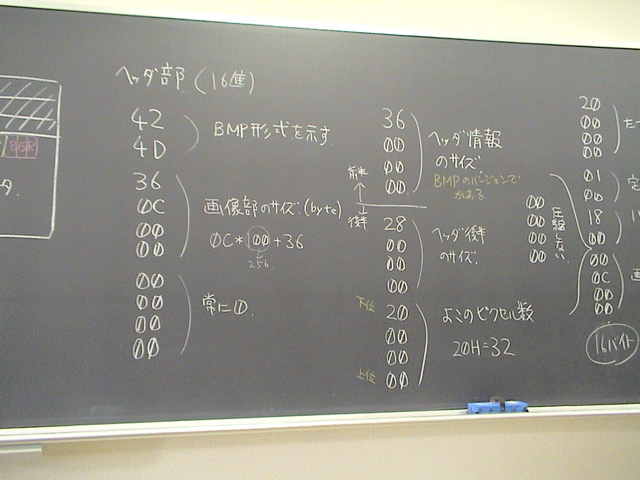 ヘッダ部(16進)
42
4D
BMP形式を示す
36
0C
00
00
画像部のサイズ.(byte)
0C*100+36
256
00
00
00
00
常に0.
BGR
タ.
36
00
00
00
ヘッダ情報
のサイズ
BMPのバージョンで
かある
前半
後半
28
00
00
00
ヘッダ後半
のサイズ.
下位
20
00
00
00
上位
よこのピクセル数
20H=32
00
00
00
00
圧縮しない
20
00
00
00
たて
01
00
18
00
00
0C
00
00
画
16バイト